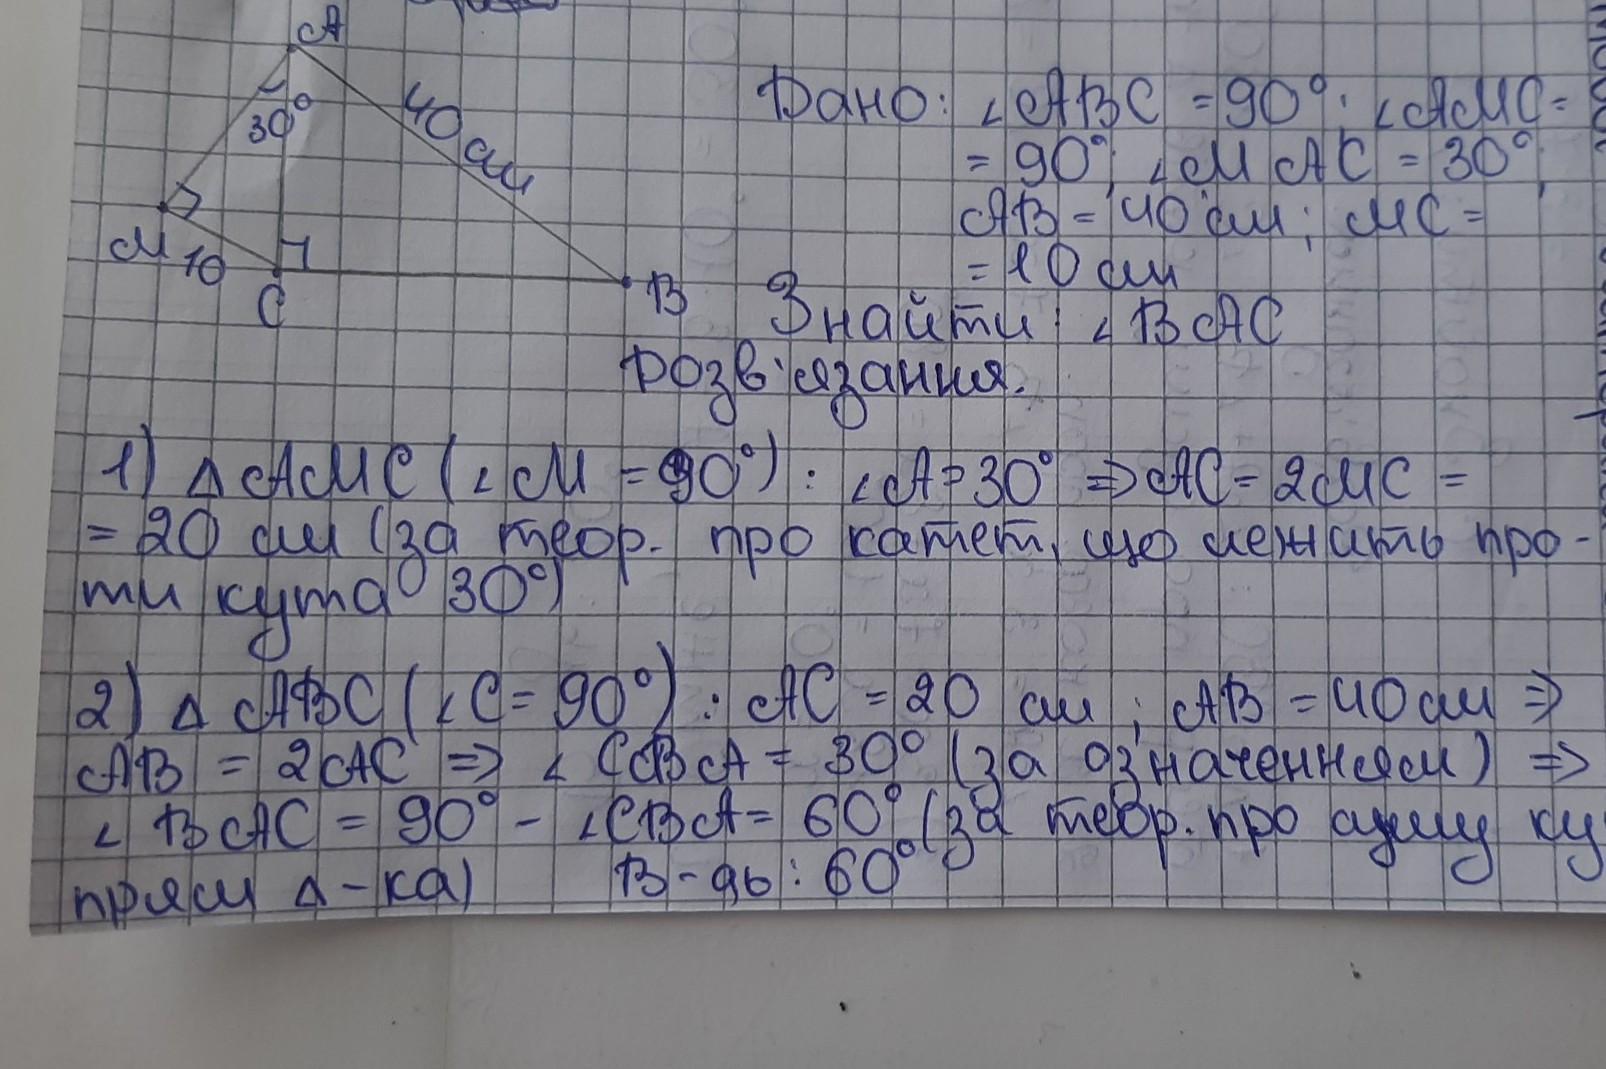 A
30°
40 см
M
10
C
B
Дано: ∠ABC = 90°; ∠AMC =
= 90°; ∠MAC = 30°;
AB = 40 см; MC =
= 10 см
Знайти: ∠BAC
Розв'язання.
1) Δ AMC (∠M = 90°): ∠A = 30° ⇒ AC = 2MC =
= 20 см (за теор. про катет, що лежить про-
ти кута 30°)
2) Δ ABC (∠C = 90°): AC = 20 см; AB = 40 см ⇒
AB = 2AC ⇒ ∠CBA = 30° (за означенням) ⇒
∠BAC = 90° - ∠CBA = 60° (за теор. про суму ку
прям Δ-ка) В-дь: 60°